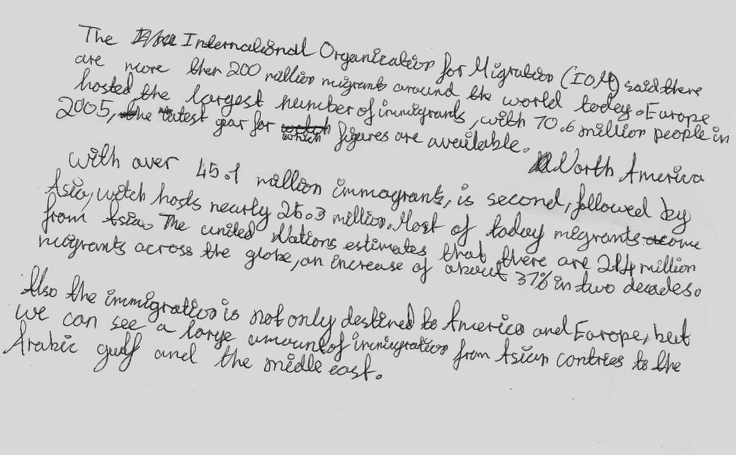 The International Organization for Migration (IOM) said there
are more then 200 million migrants around the world today. Europe
hosted the largest number of immigrants, with 70.6 million people in
2005, the latest year for which figures are available.
North America
with over 45.1 million immagrants, is second, followed by
Asia, witch hosts nearly 25.3 million. Most of today migrants come
from Asia. The united Nations estimates that there are 214 million
migrants across the globe, an increase of about 37% in two decades.
Also the immigration is not only destined to America and Europe, but
we can see a large amount of immigration from Asian contries to the
Arabic gulf and the middle east.